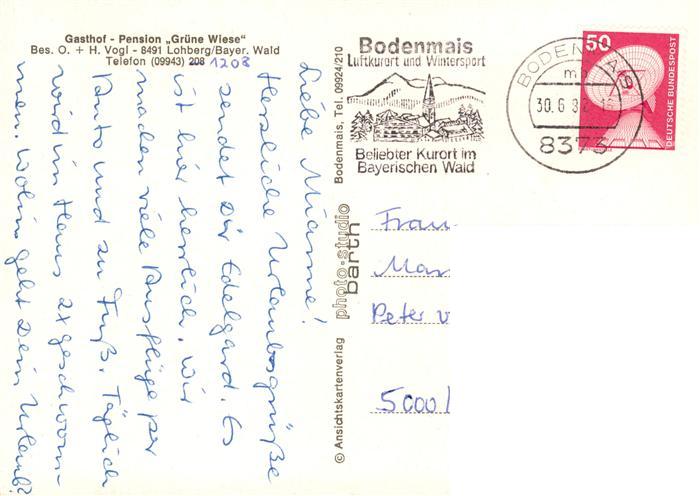 Gasthof - Pension „Grüne Wiese“
Bes. O. + H. Vogl - 8491 Lohberg/Bayer. Wald
Telefon (09943) 208 1208
Liebe Mianne!
Herzliche Urlaubsgrüße
sendet Dir Edelgard. Es
ist hier herrlich. Wir
machen viele Ausflüge per
Auto und zu Fuß. Täglich
wird im Haus 2x geschwom-
men. Wohin geht Dein Urlaub?
Bodenmais, Tel. 09924/210
Bodenmais
Luftkurort und Wintersport
Beliebter Kurort im
Bayerischen Wald
BODENMAIS
mb
30.6.8
8373
50
DEUTSCHE BUNDESPOST
photo-studio
barth
© Ansichtskartenverlag
Frau
Mar
Peter v
5000